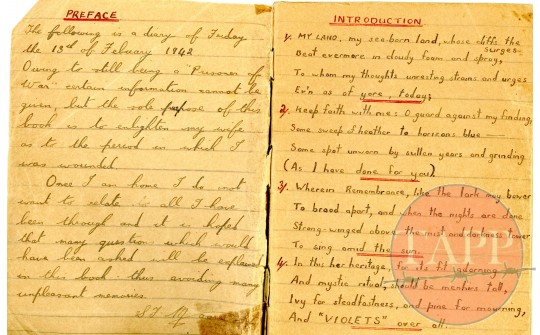 PREFACE
The following is a diary of Friday
the 13th of Febuary 1942
Owing to still being a "Prisoner of
War" certain information cannot be
given, but the sole purpose of this
book is to enlighten my wife
as to the period in which I
was wounded.
Once I am home I do not
want to relate all I have
been through and it is hoped
that many question which would
have been asked will be explained
in this book thus avoiding many
unpleasant memories.
INTRODUCTION
1. MY LAND, my sea-born land, whose cliffs the
surges
Beat evermore in cloudy foam and spray,
To whom my thoughts unresting strains and urges
Ev'n as of yore, today;
2. Keep faith with me: O guard against my finding,
Some sweep of heather to horizons blue
Some spot unworn by sullen years and grinding.
(As I have done for you)
3. Wherein Remembrance, like the lark may bower
To brood apart, and when the nights are done
Strong-winged above the mist and darkness tower
To sing amid the sun.
4. In this her heritage, for its fit adorning
And mystic ritual, should be menhirs tall,
Ivy for steadfastness, and pine for mourning,
And "VIOLETS" over all.
CAPP